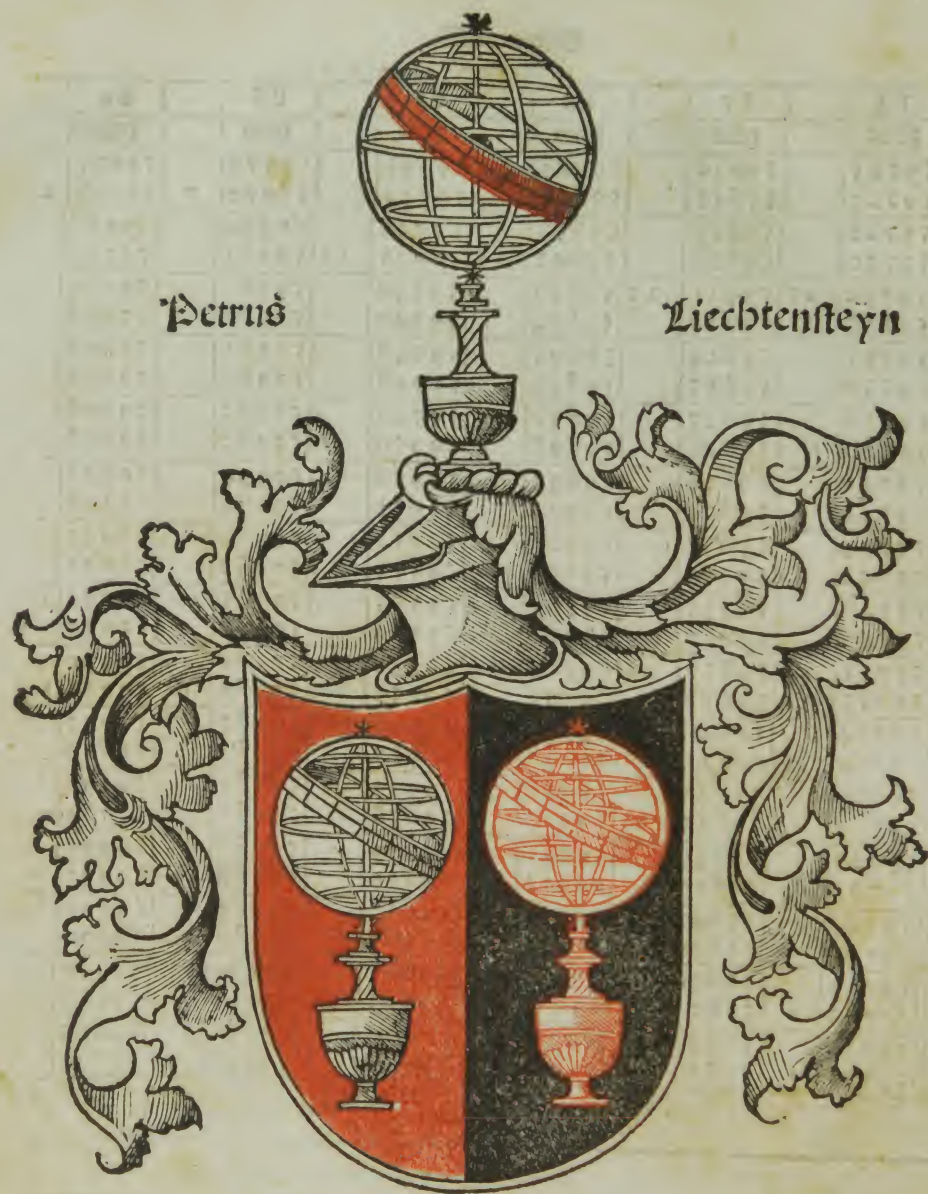 Petrus Liechtensteyn